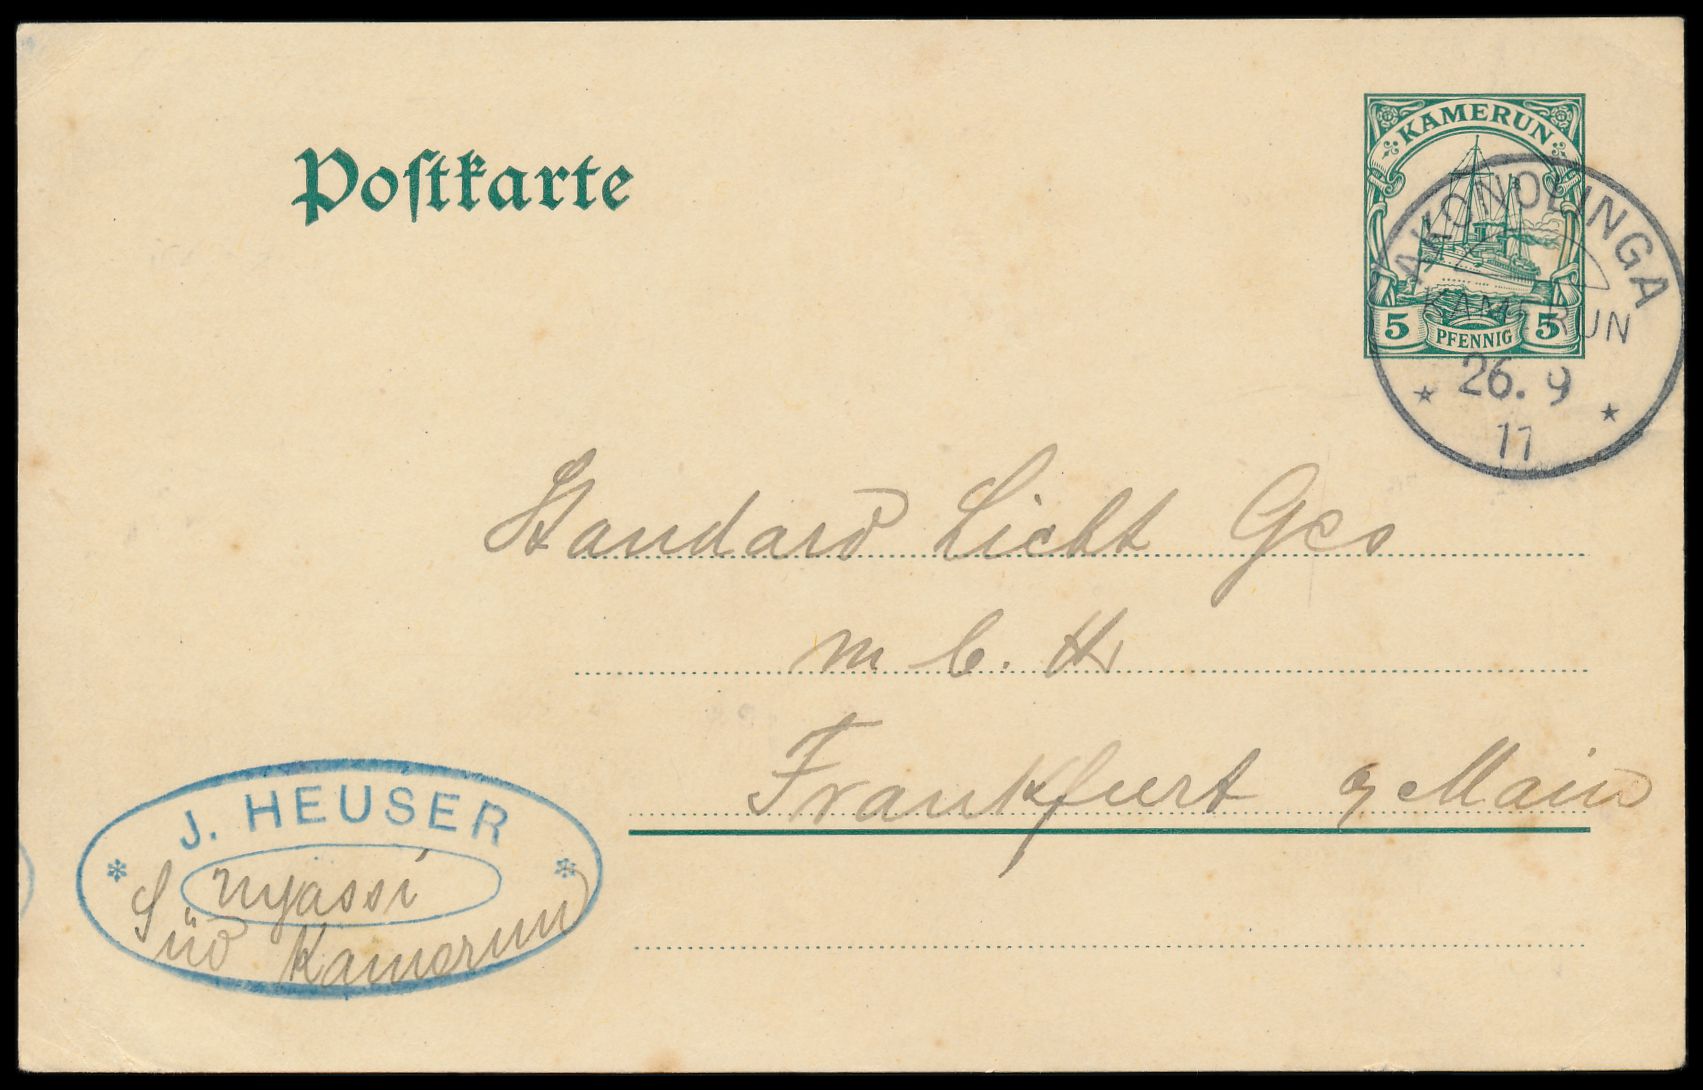 Postkarte
KAMERUN
5 PFENNIG 5
AKONOLINGA
KAMERUN
* 26. 9 *
11
Standard Licht Ges
m b. H
Frankfurt a/ Main
J. HEUSER
* Nyassi *
Süd Kamerun